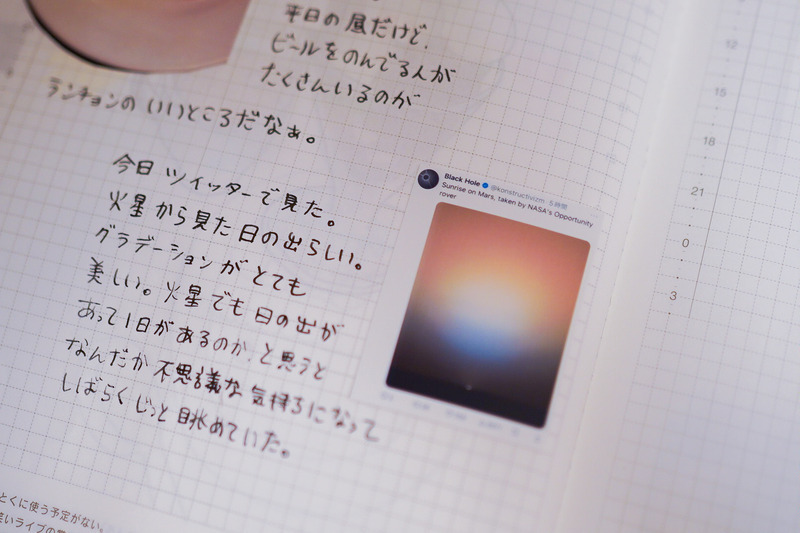 平日の昼だけど、
ビールをのんでる人が
たくさんいるのが
ランチョンの いいところだなぁ。
今日 ツイッターで見た。
火星 から見た 日の出らしい。
グラデーションが とても
美しい。火星でも 日の出が
あって1日があるのか、と思うと
なんだか 不思議な 気持ちになって
しばらく じっと 眺めていた。
Black Hole @konstructivizm 5時間
Sunrise on Mars, taken by NASA's Opportunity
rover
12
15
18
21
0
3
とくに使う予定がない。
笑いライブの